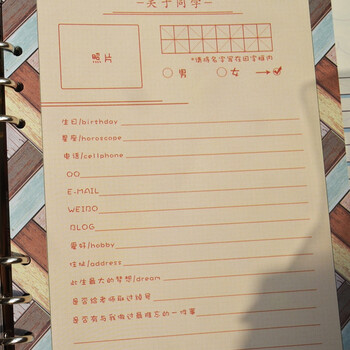 —关于同学—
照片
*请将名字写在田字格内
男 女
生日/birthday
星座/horoscope
电话/cellphone
QQ
E-MAIL
WEIBO
BLOG
爱好/hobby
住址/address
此生最大的梦想/dream
是否给老师取过绰号
是否有与我做过最难忘的一件事